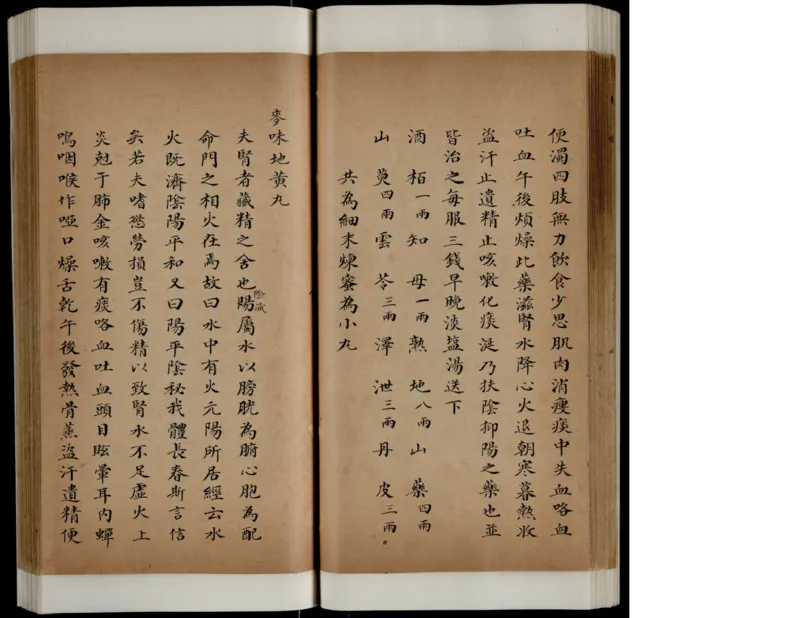 便濁四肢無力飲食少思肌肉消瘦痰中失血咯血
吐血午後煩燥此藥滋腎水降心火退朝寒暮熱收
盜汗止遺精止咳嗽化痰涎乃扶陰抑陽之藥也並
皆治之每服三錢早晚淡盐湯送下
酒栢一兩知母一兩熟地八兩山藥四兩
山萸四兩雲苓三兩澤泄三兩丹皮三兩
共為細末煉蜜為小丸
麥味地黃丸
夫腎者藏精之舍也陽屬水以膀胱為腑心胞為配
陰藏
命門之相火在焉故曰水中有火元陽所居經云水
火既濟陰陽平和又曰陽平陰秘我體長春斯言信
矣若夫嗜慾勞損豈不傷精以致腎水不足虛火上
炎尅于肺金咳嗽有痰咯血吐血頭目眩暈耳內蟬
鳴咽喉作啞口燥舌乾午後發熱骨蒸盜汗遺精便